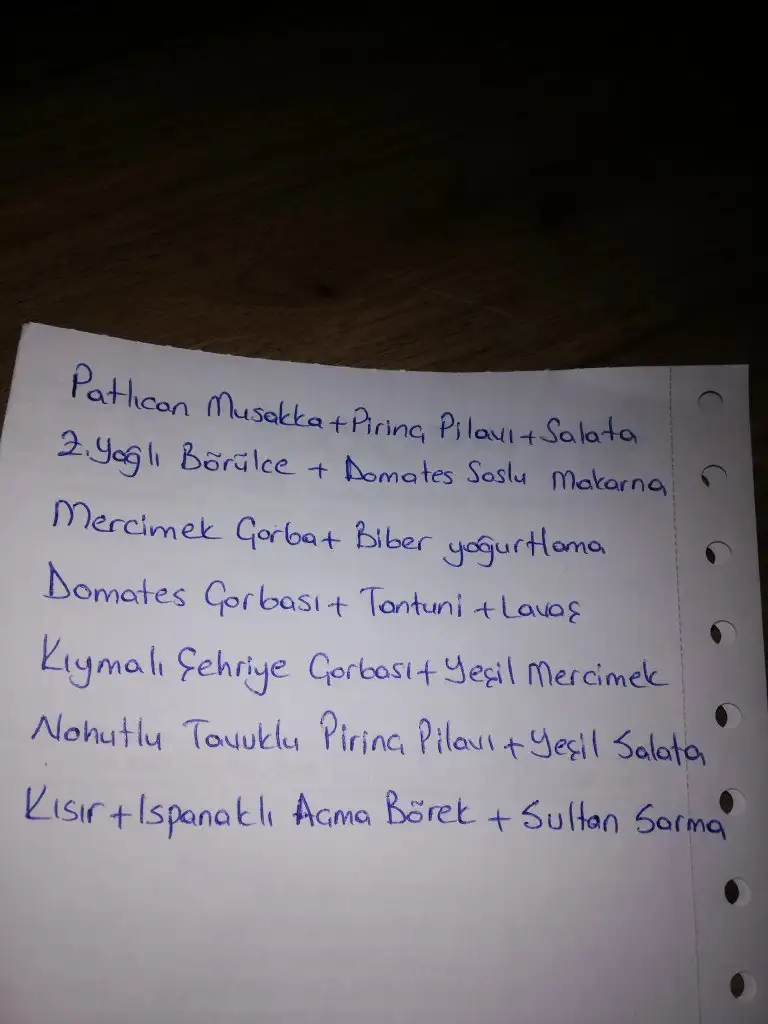 Patlıcan Musakka+Pirinç Pilavı+Salata
Z.Yağlı Börülce + Domates Soslu Makarna
Mercimek Çorba+ Biber yoğurtlama
Domates Çorbası+ Tantuni +Lavaş
Kıymalı Şehriye Çorbası+Yeşil Mercimek
Nohutlu Tavuklu Pirinç Pilavı+Yeşil Salata
Kısır+Ispanaklı Açma Börek + Sultan Sarma